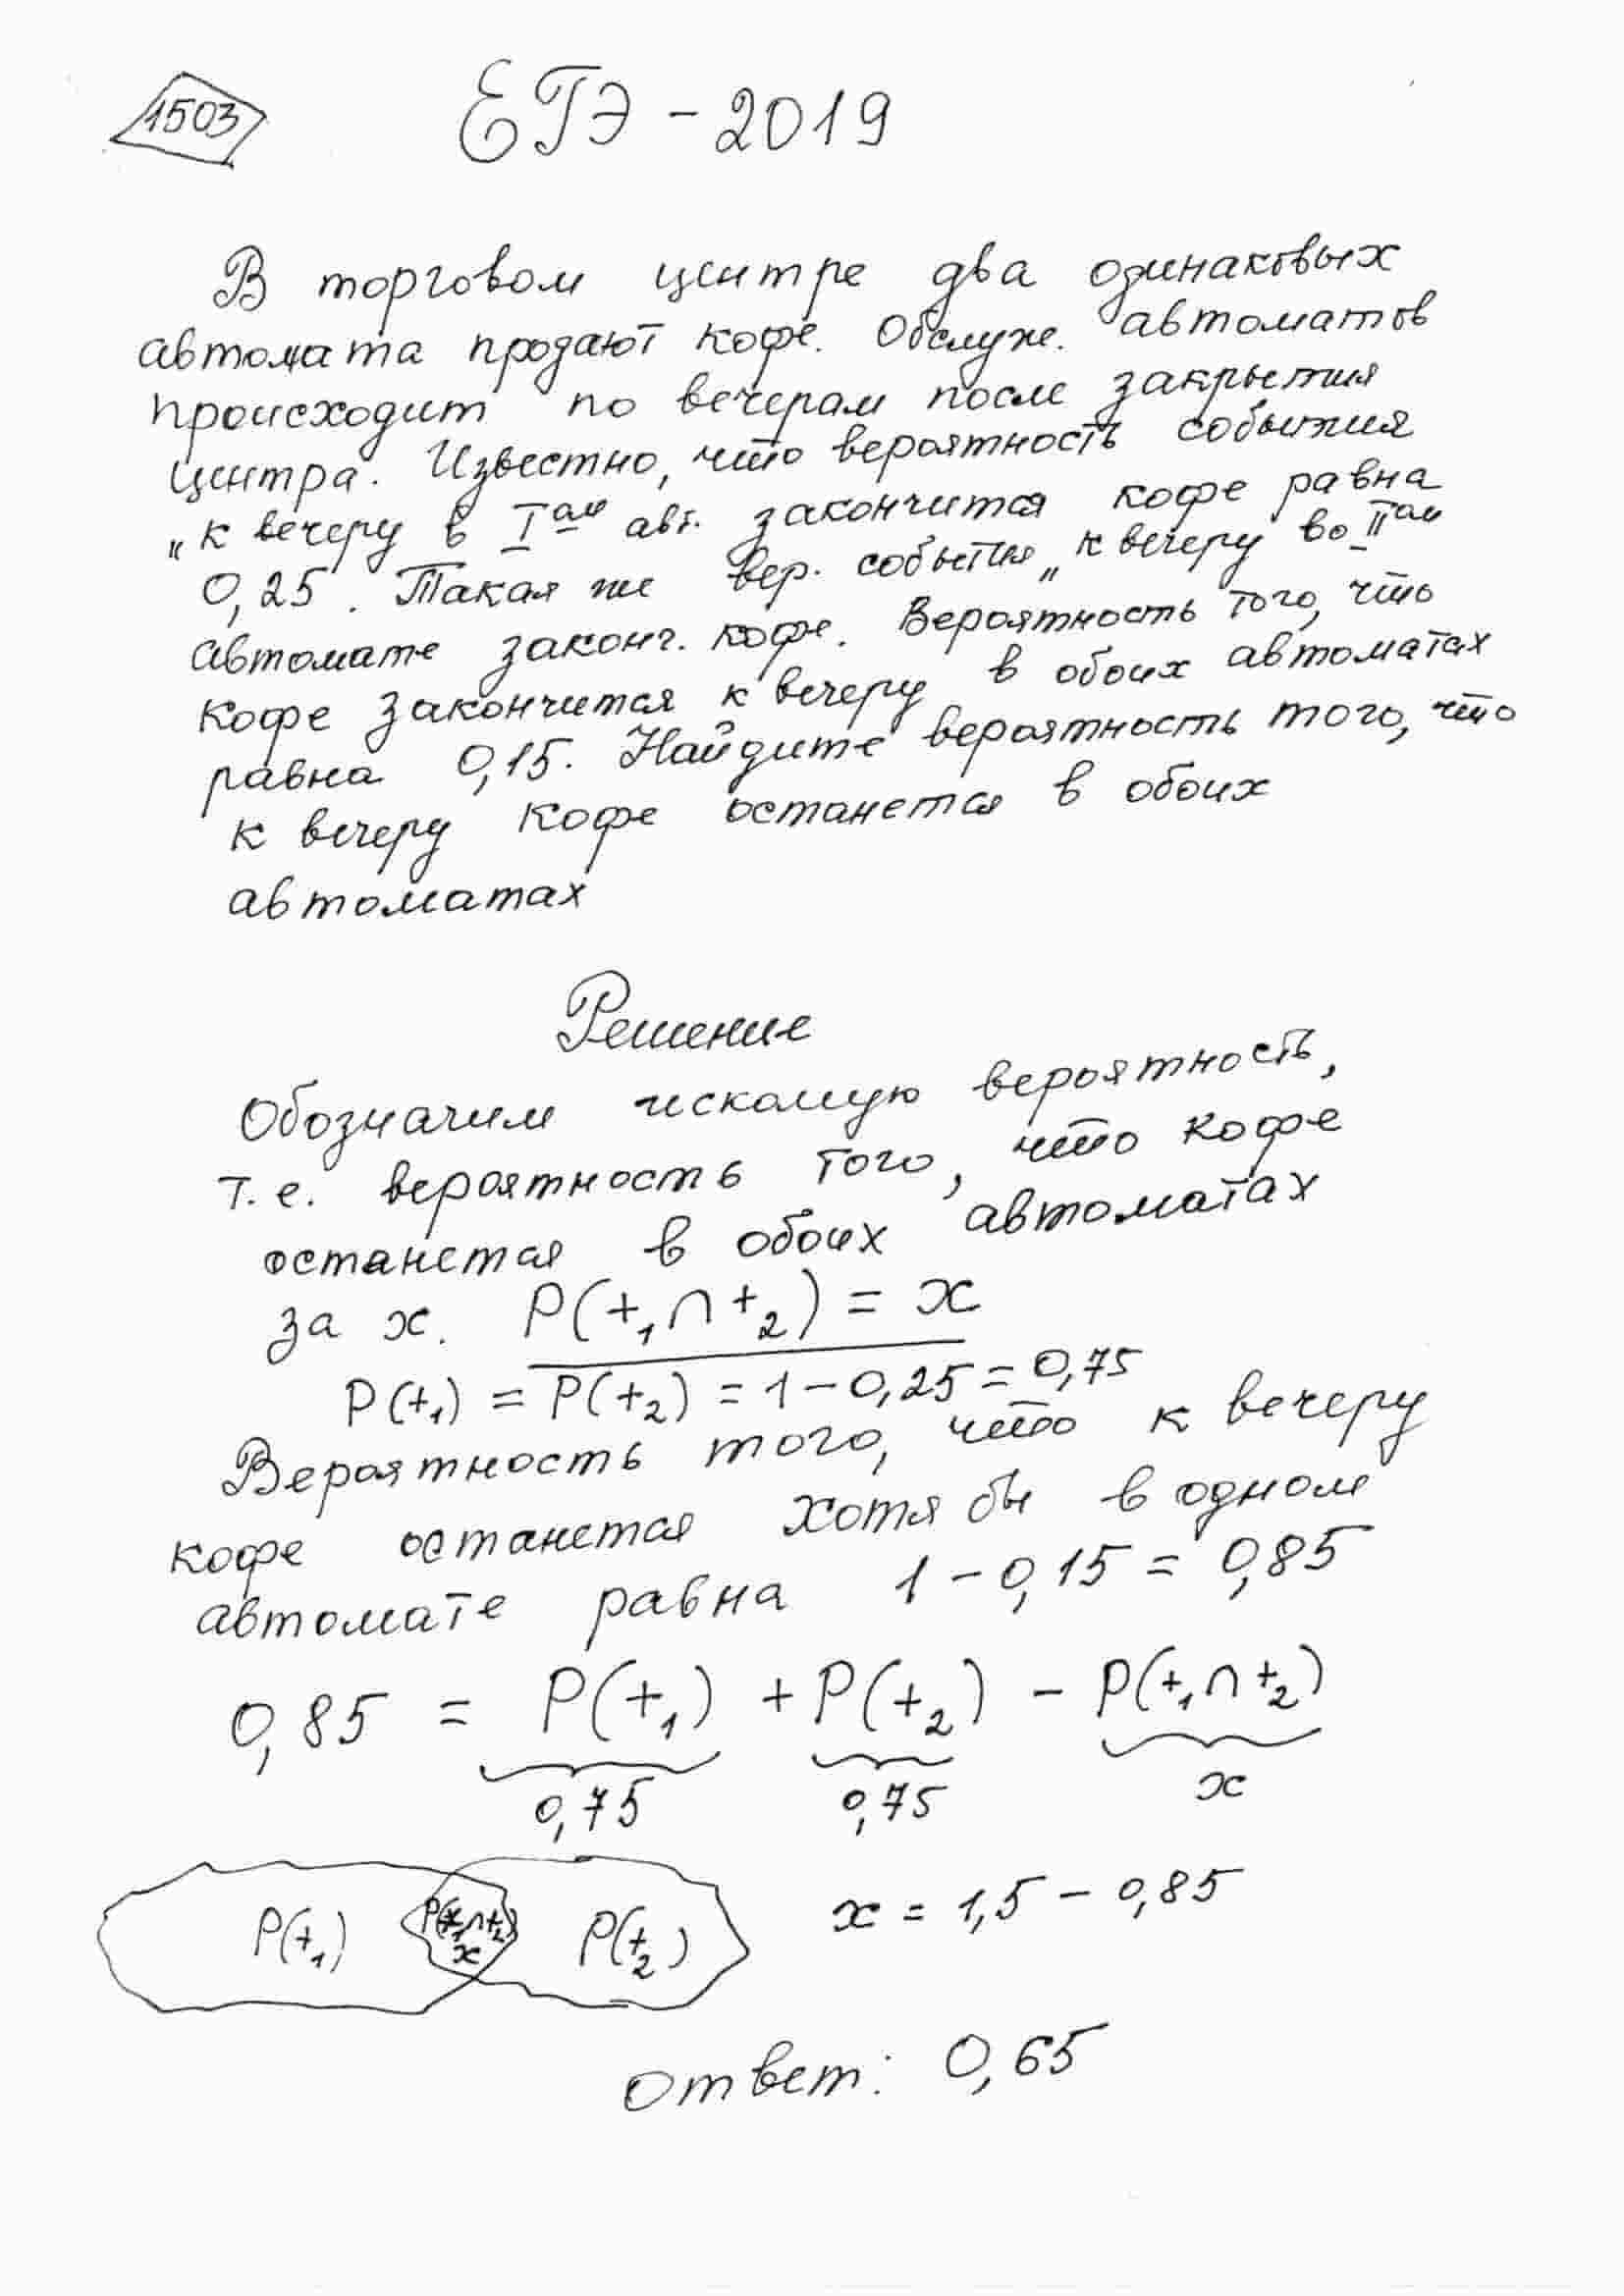 1503
ЕГЭ - 2019
В торговом центре два одинаковых
автомата продают кофе. Обслуж. автоматов
происходит по вечерам после закрытия
центра. Известно, что вероятность события
„к вечеру в I ом авт. закончится кофе равна
0,25. Такая же вер. события „к вечеру во II ом
автомате законч. кофе. Вероятность того, что
кофе закончится к вечеру в обоих автоматах
равна 0,15. Найдите вероятность того, что
к вечеру кофе останется в обоих
автоматах
Решение
Обозначим искомую вероятность,
т.е. вероятность того, что кофе
останется в обоих автоматах
за x. P(+₁∩+₂) = x
P(+₁) = P(+₂) = 1 – 0,25 = 0,75
Вероятность того, что к вечеру
кофе останется хотя бы в одном
автомате равна 1 – 0,15 = 0,85
0,85 = P(+₁) + P(+₂) – P(+₁∩+₂)
0,75 0,75 x
P(+₁) P(+₁∩+₂) x P(+₂)
x = 1,5 – 0,85
Ответ: 0,65